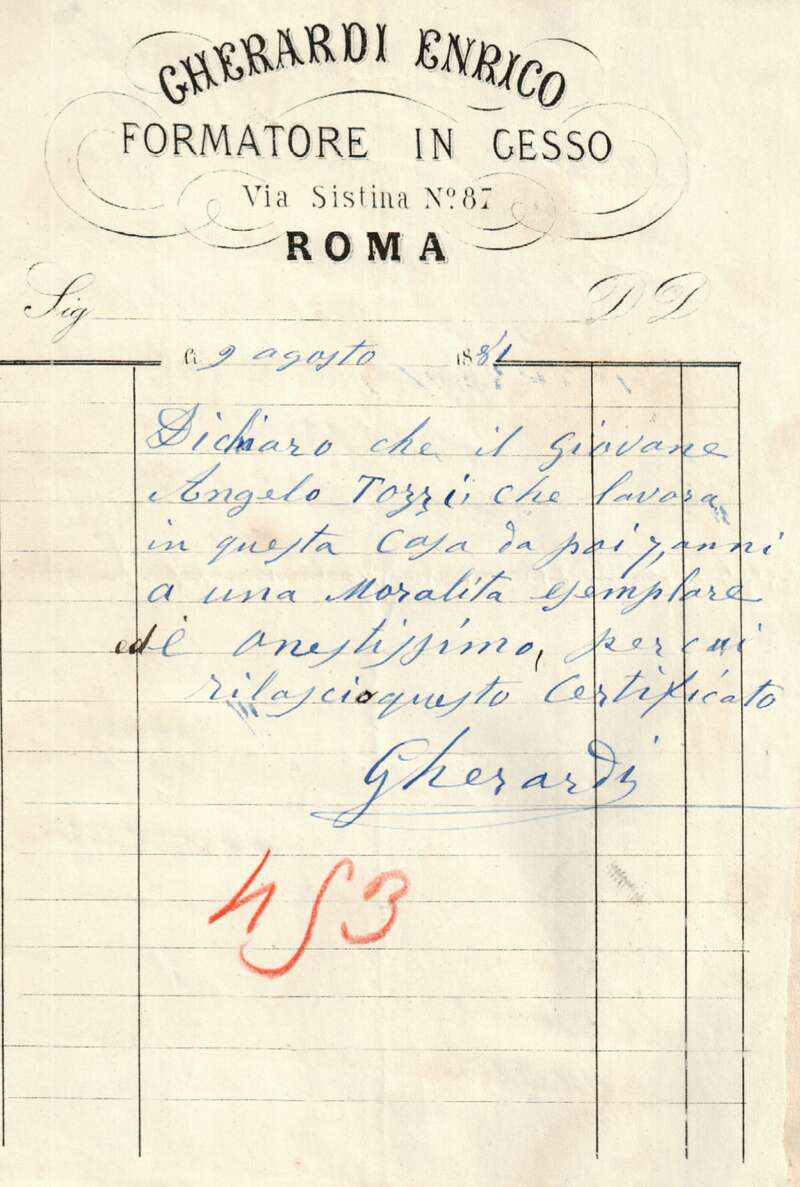 GHERARDI ENRICO
FORMATORE IN GESSO
Via Sistina Nº. 87
ROMA
Sig D D
li 9 agosto 1881
Dichiaro che il giovane
Angelo Tozzi, che lavora
in questa Casa da poi 7, anni
a una Moralita esemplare
ed è onestissimo, per cui
rilascio questo Certificato
Gherardi
453